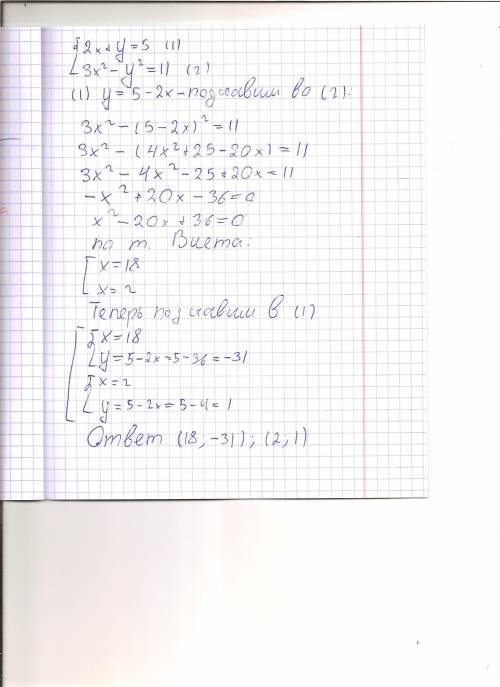 {2x+y=5 (1)
3x²-y²=11 (2)
(1) y=5-2x-подставим во (2):
3x²-(5-2x)²=11
3x²-(4x²+25-20x)=11
3x²-4x²-25+20x=11
-x²+20x-36=0
x²-20x+36=0
по т. Виета:
[x=18
x=2
Теперь подставим в (1)
[{x=18
y=5-2x=5-36=-31
{x=2
y=5-2x=5-4=1
Ответ (18,-31); (2;1)